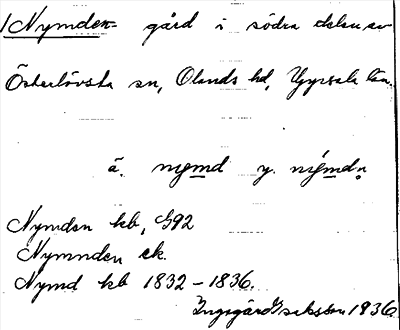 1 Nymden- gård i södra delen av
Österlövsta sn, Olands hd, Uppsala län.
ä. nymd y. nýmdn
Nymden kb, G92
Nymnden ek.
Nymd kb 1832-1836.
Ingegärd Iraksson 1936